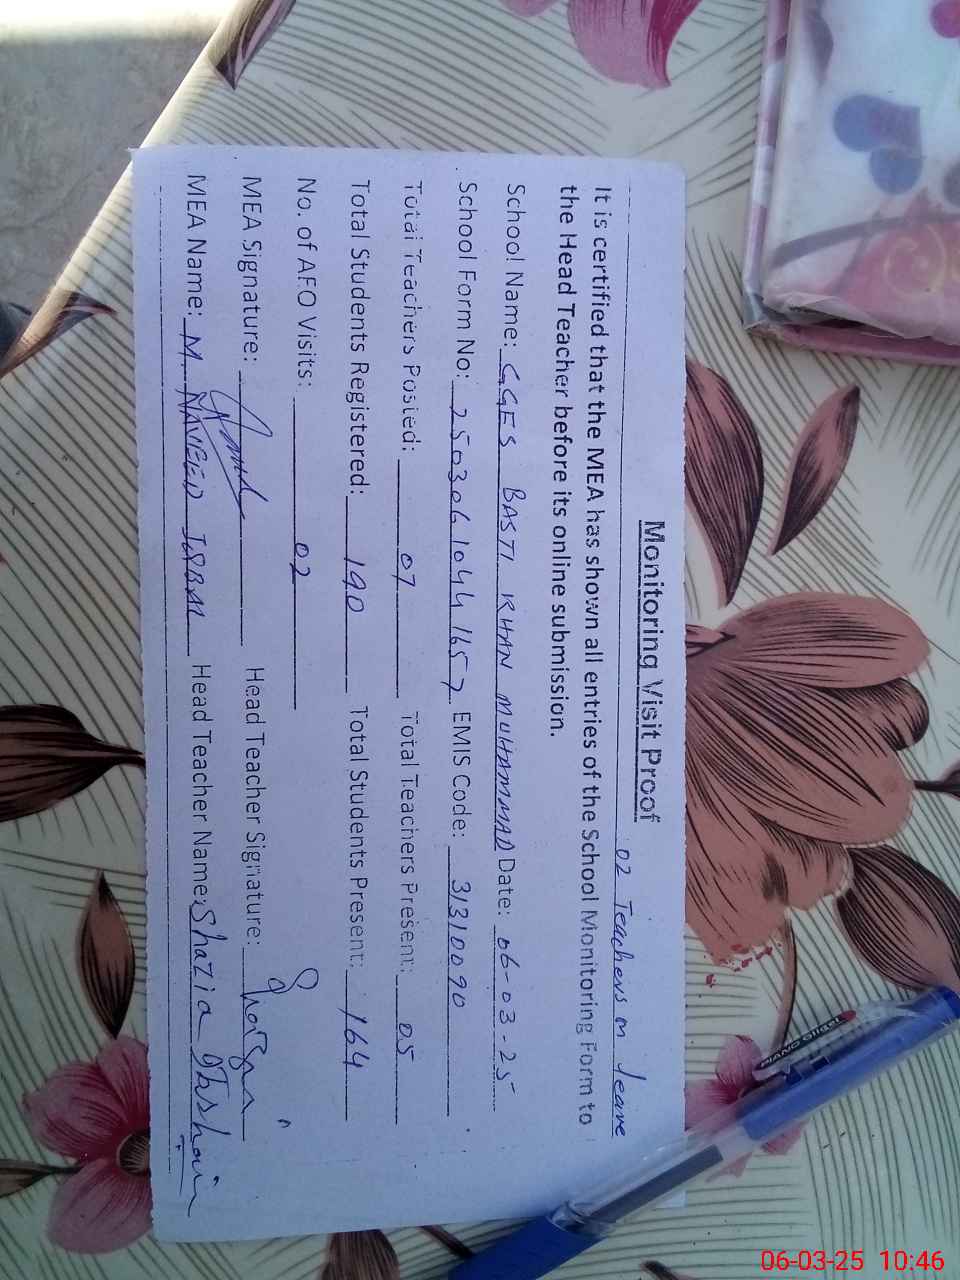 Monitoring Visit Proof
02 Teachers on leave
It is certified that the MEA has shown all entries of the School Monitoring Form to
the Head Teacher before its online submission.
School Name: GGES BASTI KHAN MUHAMMAD Date: 06-03-25
School Form No: 25030610441657 EMIS Code: 31310090
Total Teachers Posted: 07 Total Teachers Present: 05
Total Students Registered: 190 Total Students Present: 164
No. of AEO Visits: 02
MEA Signature: Head Teacher Signature:
MEA Name: M. NAVEED IQBAL Head Teacher Name: Shazia
PIANO
06-03-25 10:46